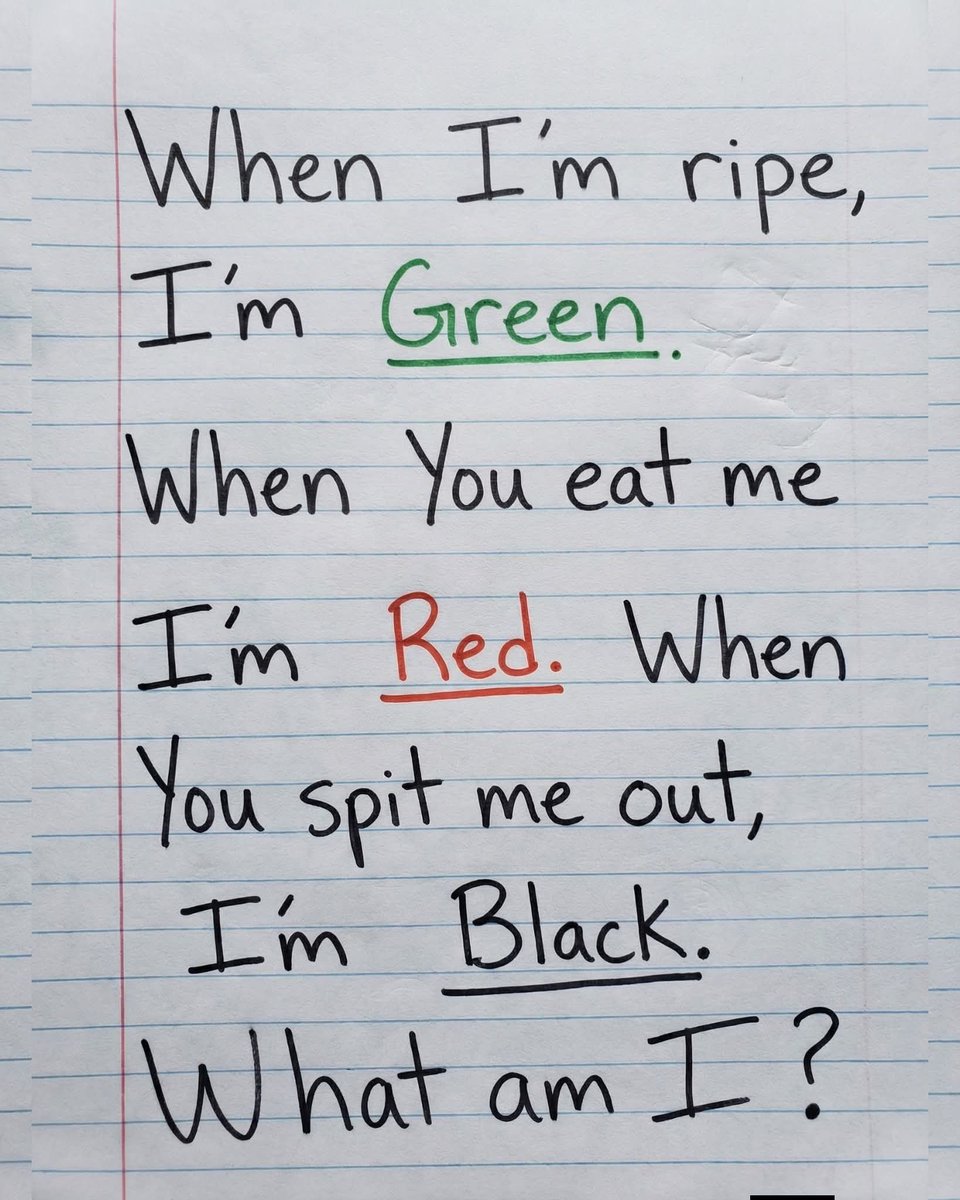 When I'm ripe,
I'm Green.
When You eat me
I'm Red. When
You spit me out,
I'm Black.
What am I?